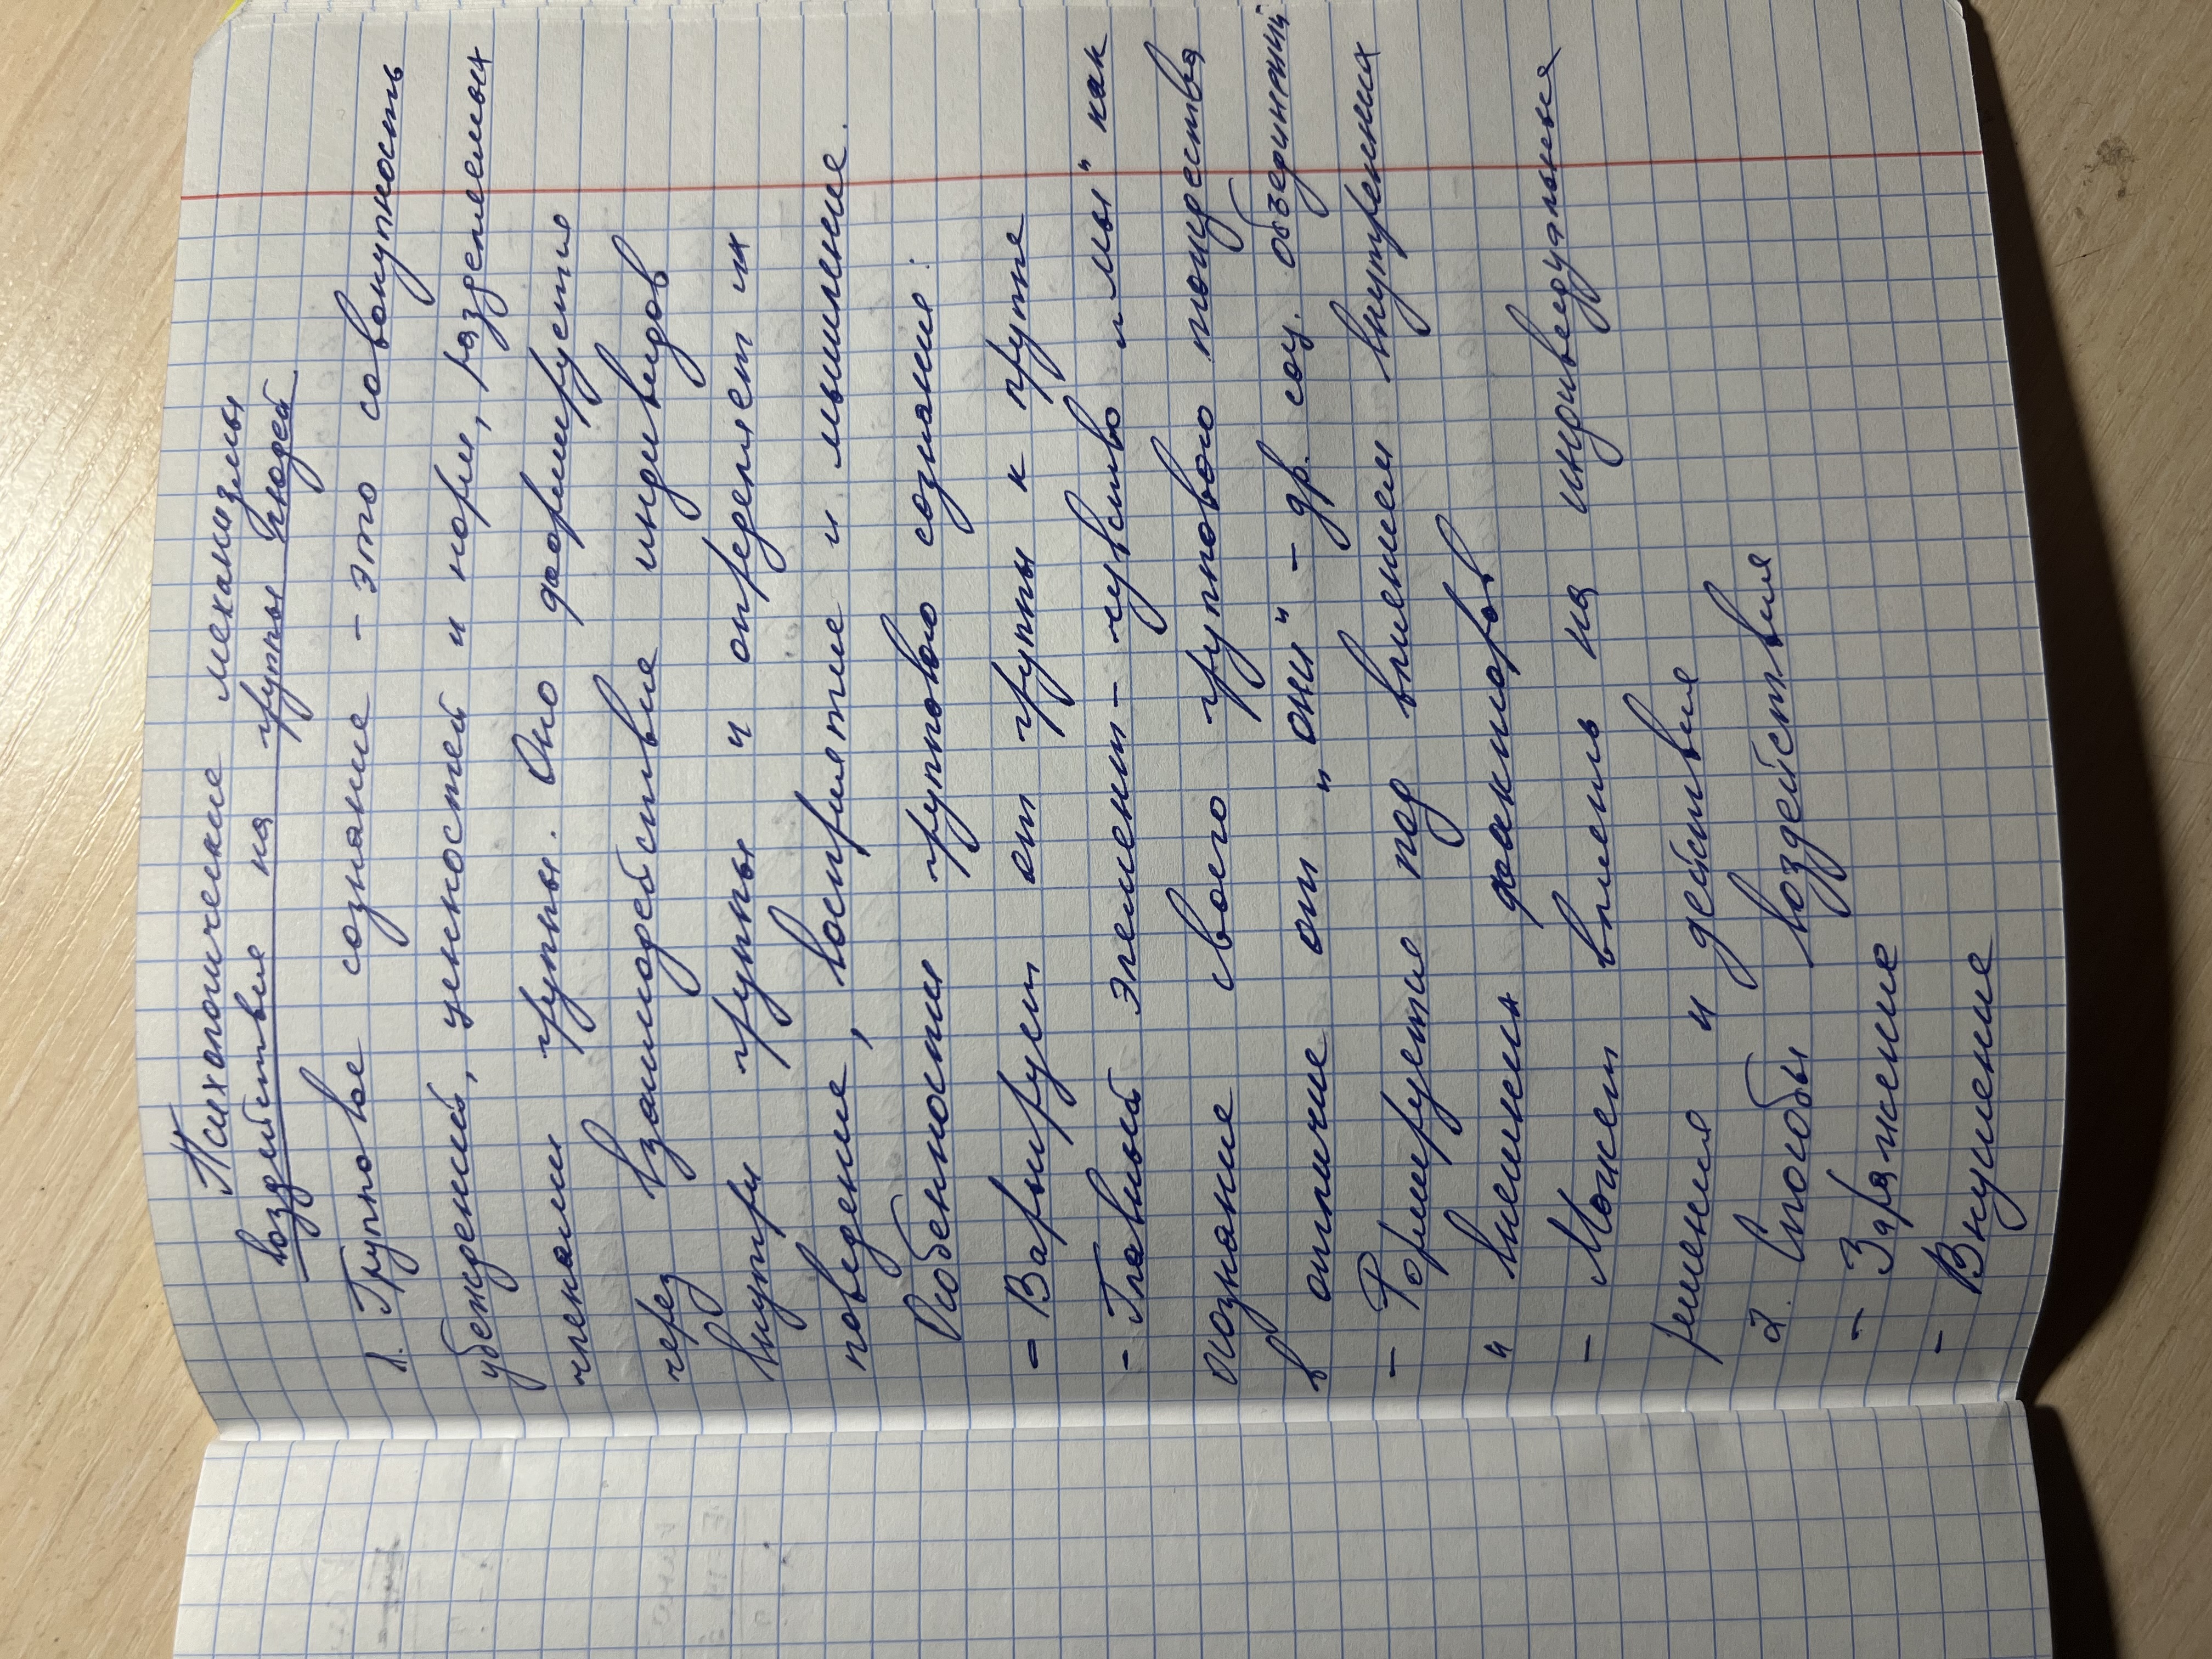 Психологические механизмы
воздействия на группы людей
1. Групповое сознание - это совокупность
убеждений, ценностей и норм, разделяемых
членами группы. Оно формируется
через взаимодействие индивидов
внутри группы и определяет их
поведение, восприятие и мышление.
Особенности группового сознания:
- Варьирует от группы к группе
- Главный элемент - чувство "мы" как
осознание своего группового тождества
в отличие от "они" - др. соц. объединений
- Формируется под влиянием внутренних
и внешних факторов
- Может влиять на индивидуальные
решения и действия
2. Способы воздействия
- Заражение
- Внушение